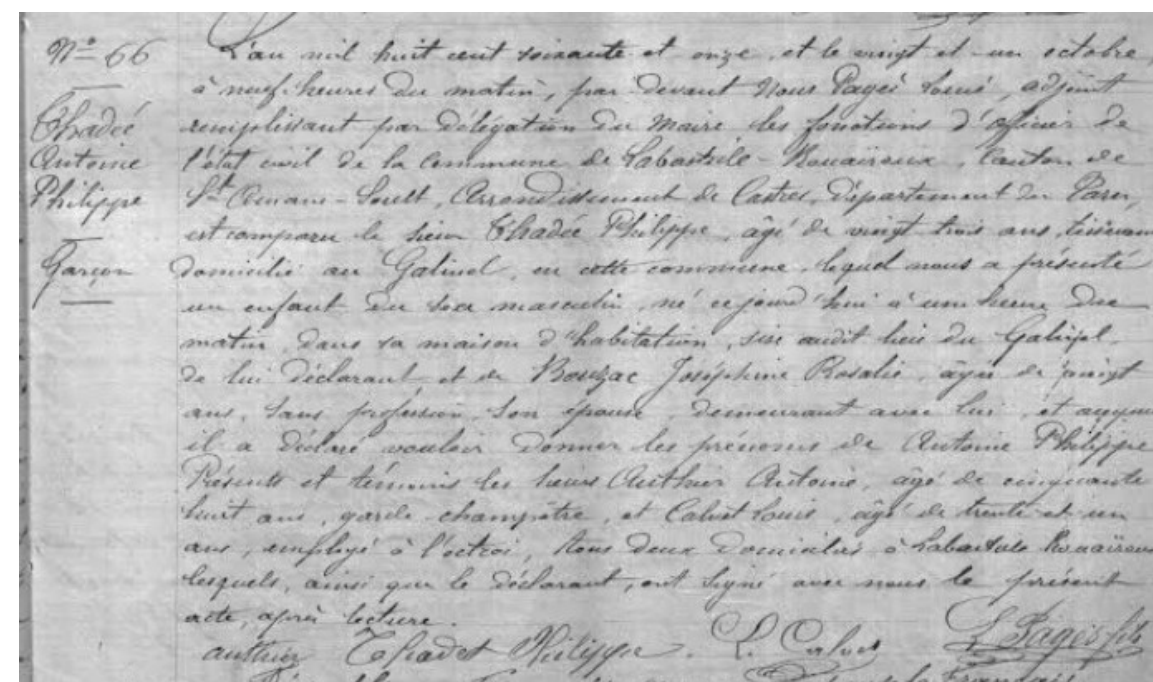 N° 66
Thadée
Antoine
Philippe
Garçon
L'an mil huit cent soixante et onze, et le vingt et un octobre,
à neuf heures du matin, par devant Nous Pagès Louis, adjoint
remplissant par délégation du Maire, les fonctions d'officier de
l'état civil de la Commune de Labastide-Rouairoux, Canton de
St Amans-Soult, Arrondissement de Castres, Département du Tarn,
est comparu le sieur Thadée Philippe, âgé de vingt trois ans, tisserand
domicilié au Galinel, en cette commune, lequel nous a présenté
un enfant du sexe masculin, né ce jourd'hui à une heure du
matin, dans sa maison d'habitation, sise audit lieu du Galinel,
de lui déclarant et de Bouzac Joséphine Rosalie, âgée de vingt
ans, sans profession, son épouse, demeurant avec lui, et auquel
il a déclaré vouloir donner les prénoms de Antoine Philippe
Présents et témoins les sieurs Authier Antoine, âgé de cinquante
huit ans, garde-champêtre, et Calvet Louis, âgé de trente et un
ans, employé à l'octroi, tous deux domiciliés à Labastide Rouairoux
lesquels, ainsi que le déclarant, ont signé avec nous le présent
acte, après lecture.
authier Thadet Philippe. L. Calvet L. Pagès fils